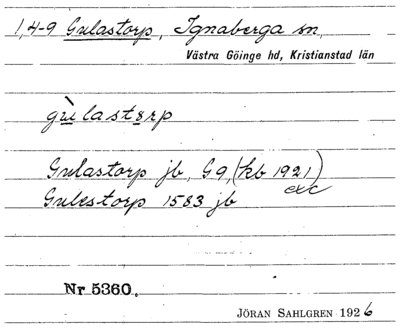 1,4-9 Gulastorp, Ignaberga sn,
Västra Göinge hd, Kristianstad län
gùlastɜrp
Gulastorp jb, G9, (kb 1921)
exc
Gulestorp 1583 jb
Nr 5360.
JÖRAN SAHLGREN 1926